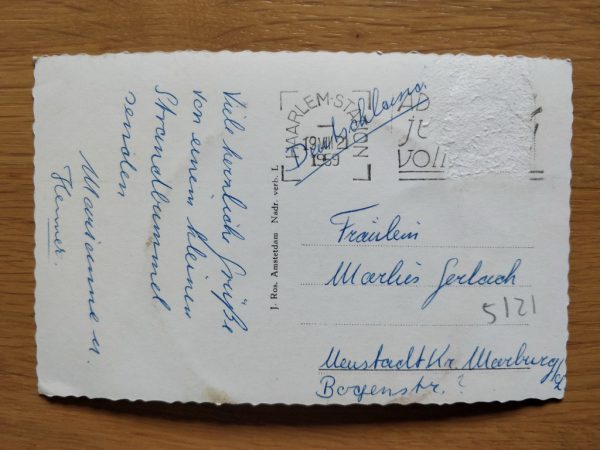 Viele herzliche Grüße
von einem kleinen
Strandbummel
senden
Marianne u.
Henner.
J. Ros. Amstetdam Nadr. verb. I.
HAARLEM-STATION
19 VIII 2
1959
Deutschland
AB
je
voll
Fräulein
Marlies Gerlach
5121
Neustadt Kr. Marburg/L
Bogenstr. ?